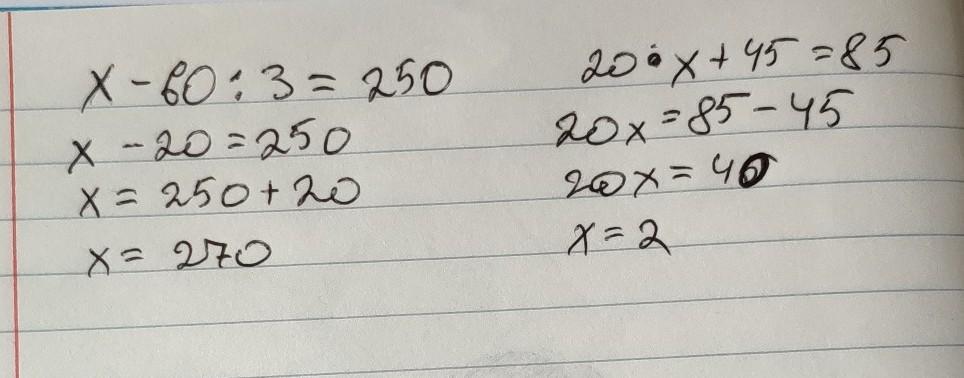 x - 60 : 3 = 250
x - 20 = 250
x = 250 + 20
x = 270
20 • x + 45 = 85
20x = 85 - 45
20x = 40
x = 2